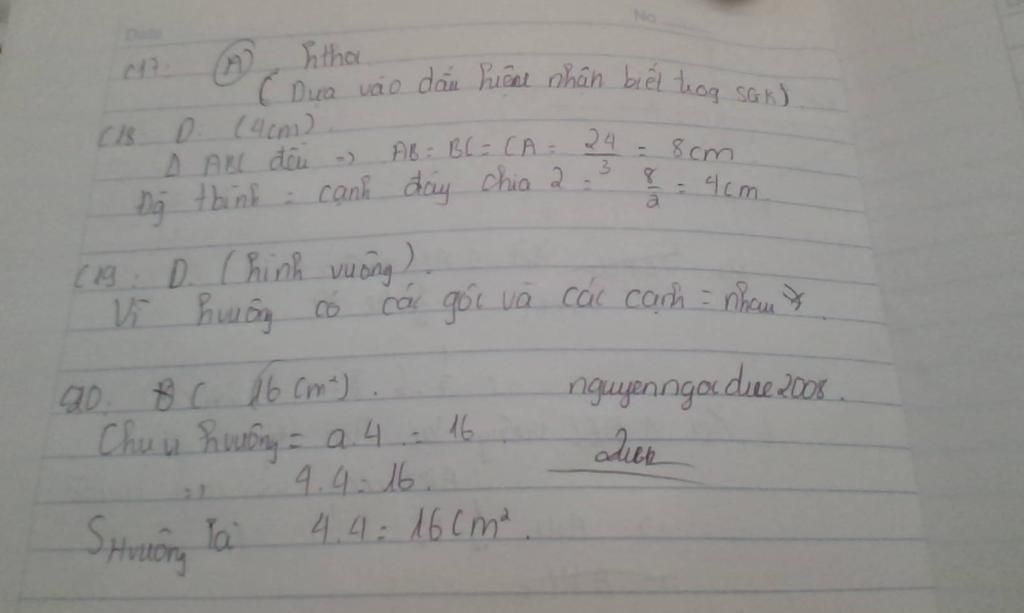 No
Date
C17: A) hthoi
(Dựa vào dấu hiệu nhận biết trog SGK)
C18 D. (4cm).
Δ ABC đều => AB = BC = CA = 24/3 = 8cm
Độ tbình = cạnh đáy chia 2 = 8/2 = 4cm
C19: D. (hình vuông).
Vì hvuông có các góc và các cạnh = nhau
C. 16 (m²).
nguyenngocduc2008.
Chu vi hvuông = a.4 = 16
=> 4.4 = 16.
S Hvuông là 4.4 = 16 Cm².